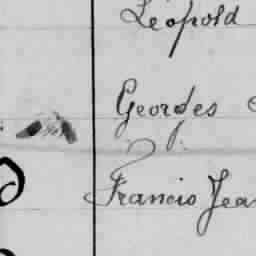 Léopold
Georges
Francis Jea